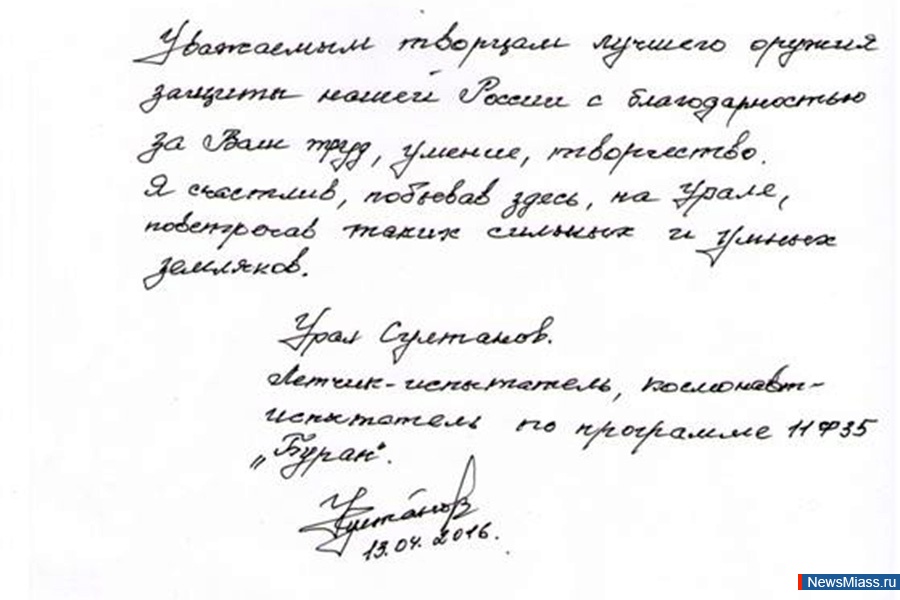 Уважаемым творцам лучшего оружия
защиты нашей России с благодарностью
за Ваш труд, умение, творчество.
Я счастлив, побывав здесь, на Урале,
повстречав таких сильных и умных
земляков.
Урал Султанов.
Летчик-испытатель, космонавт-
испытатель по программе 11Ф35
„Буран".
Султанов
13.04.2016.
NewsMiass.ru